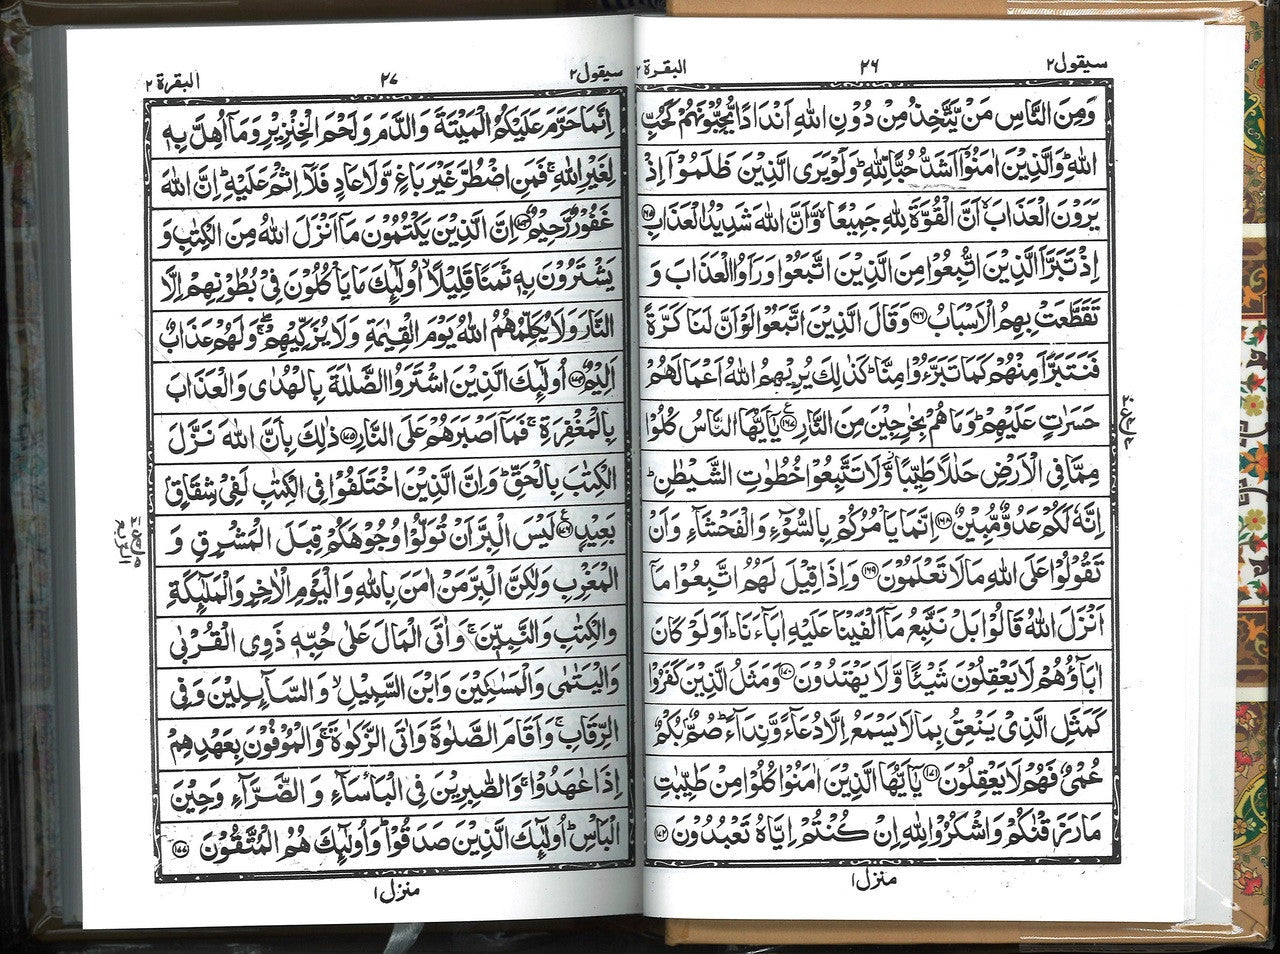 سيقول ٢
٢٦
البقرة ٢
وَمِنَ النَّاسِ مَنْ يَّتَّخِذُ مِنْ دُوْنِ اللّٰهِ اَنْدَادًا يُّحِبُّوْنَهُمْ كَحُبِّ
اللّٰهِ ؕ وَالَّذِيْنَ اٰمَنُوْۤا اَشَدُّ حُبًّا لِّلّٰهِ ؕ وَلَوْ يَرَى الَّذِيْنَ ظَلَمُوْۤا اِذْ
يَرَوْنَ الْعَذَابَ ۙ اَنَّ الْقُوَّةَ لِلّٰهِ جَمِيْعًا ۙ وَّاَنَّ اللّٰهَ شَدِيْدُ الْعَذَابِ ﴿١٦٥﴾
اِذْ تَبَرَّاَ الَّذِيْنَ اتُّبِعُوْا مِنَ الَّذِيْنَ اتَّبَعُوْا وَرَاَوُا الْعَذَابَ وَ
تَقَطَّعَتْ بِهِمُ الْاَسْبَابُ ﴿١٦٦﴾ وَقَالَ الَّذِيْنَ اتَّبَعُوْا لَوْ اَنَّ لَنَا كَرَّةً
فَنَتَبَرَّاَ مِنْهُمْ كَمَا تَبَرَّءُوْا مِنَّا ؕ كَذٰلِكَ يُرِيْهِمُ اللّٰهُ اَعْمَالَهُمْ
حَسَرٰتٍ عَلَيْهِمْ ؕ وَمَا هُمْ بِخٰرِجِيْنَ مِنَ النَّارِ ﴿١٦٧﴾ يٰۤاَيُّهَا النَّاسُ كُلُوْا
مِمَّا فِى الْاَرْضِ حَلٰلًا طَيِّبًا ۖ وَّلَا تَتَّبِعُوْا خُطُوٰتِ الشَّيْطٰنِ ؕ
اِنَّهٗ لَكُمْ عَدُوٌّ مُّبِيْنٌ ﴿١٦٨﴾ اِنَّمَا يَاْمُرُكُمْ بِالسُّوْٓءِ وَالْفَحْشَآءِ وَاَنْ
تَقُوْلُوْا عَلَى اللّٰهِ مَا لَا تَعْلَمُوْنَ ﴿١٦٩﴾ وَاِذَا قِيْلَ لَهُمُ اتَّبِعُوْا مَاۤ
اَنْزَلَ اللّٰهُ قَالُوْا بَلْ نَتَّبِعُ مَاۤ اَلْفَيْنَا عَلَيْهِ اٰبَآءَنَا ؕ اَوَلَوْ كَانَ
اٰبَآؤُهُمْ لَا يَعْقِلُوْنَ شَيْئًا وَّلَا يَهْتَدُوْنَ ﴿١٧٠﴾ وَمَثَلُ الَّذِيْنَ كَفَرُوْا
كَمَثَلِ الَّذِيْ يَنْعِقُ بِمَا لَا يَسْمَعُ اِلَّا دُعَآءً وَّنِدَآءً ؕ صُمٌّۢ بُكْمٌ
عُمْيٌ فَهُمْ لَا يَعْقِلُوْنَ ﴿١٧١﴾ يٰۤاَيُّهَا الَّذِيْنَ اٰمَنُوْا كُلُوْا مِنْ طَيِّبٰتِ
مَا رَزَقْنٰكُمْ وَاشْكُرُوْا لِلّٰهِ اِنْ كُنْتُمْ اِيَّاهُ تَعْبُدُوْنَ ﴿١٧٢﴾
منزل ١
سيقول ٢
٢٧
البقرة ٢
اِنَّمَا حَرَّمَ عَلَيْكُمُ الْمَيْتَةَ وَالدَّمَ وَلَحْمَ الْخِنْزِيْرِ وَمَاۤ اُهِلَّ بِهٖ
لِغَيْرِ اللّٰهِ ۚ فَمَنِ اضْطُرَّ غَيْرَ بَاغٍ وَّلَا عَادٍ فَلَاۤ اِثْمَ عَلَيْهِ ؕ اِنَّ اللّٰهَ
غَفُوْرٌ رَّحِيْمٌ ﴿١٧٣﴾ اِنَّ الَّذِيْنَ يَكْتُمُوْنَ مَاۤ اَنْزَلَ اللّٰهُ مِنَ الْكِتٰبِ وَ
يَشْتَرُوْنَ بِهٖ ثَمَنًا قَلِيْلًا ۙ اُولٰٓئِكَ مَا يَاْكُلُوْنَ فِيْ بُطُوْنِهِمْ اِلَّا
النَّارَ وَلَا يُكَلِّمُهُمُ اللّٰهُ يَوْمَ الْقِيٰمَةِ وَلَا يُزَكِّيْهِمْ ۖۚ وَلَهُمْ عَذَابٌ
اَلِيْمٌ ﴿١٧٤﴾ اُولٰٓئِكَ الَّذِيْنَ اشْتَرَوُا الضَّلٰلَةَ بِالْهُدٰى وَالْعَذَابَ
بِالْمَغْفِرَةِ ۚ فَمَاۤ اَصْبَرَهُمْ عَلَى النَّارِ ﴿١٧٥﴾ ذٰلِكَ بِاَنَّ اللّٰهَ نَزَّلَ
الْكِتٰبَ بِالْحَقِّ ؕ وَاِنَّ الَّذِيْنَ اخْتَلَفُوْا فِى الْكِتٰبِ لَفِيْ شِقَاقٍۭ
بَعِيْدٍ ﴿١٧٦﴾ لَيْسَ الْبِرَّ اَنْ تُوَلُّوْا وُجُوْهَكُمْ قِبَلَ الْمَشْرِقِ وَ
الْمَغْرِبِ وَلٰكِنَّ الْبِرَّ مَنْ اٰمَنَ بِاللّٰهِ وَالْيَوْمِ الْاٰخِرِ وَالْمَلٰٓئِكَةِ
وَالْكِتٰبِ وَالنَّبِيّٖنَ ۚ وَاٰتَى الْمَالَ عَلٰى حُبِّهٖ ذَوِى الْقُرْبٰى
وَالْيَتٰمٰى وَالْمَسٰكِيْنَ وَابْنَ السَّبِيْلِ ۙ وَالسَّآئِلِيْنَ وَفِى
الرِّقَابِ ۚ وَاَقَامَ الصَّلٰوةَ وَاٰتَى الزَّكٰوةَ ۚ وَالْمُوْفُوْنَ بِعَهْدِهِمْ
اِذَا عٰهَدُوْا ۚ وَالصّٰبِرِيْنَ فِى الْبَاْسَآءِ وَالضَّرَّآءِ وَحِيْنَ
الْبَاْسِ ؕ اُولٰٓئِكَ الَّذِيْنَ صَدَقُوْا ؕ وَاُولٰٓئِكَ هُمُ الْمُتَّقُوْنَ ﴿١٧٧﴾
منزل ١